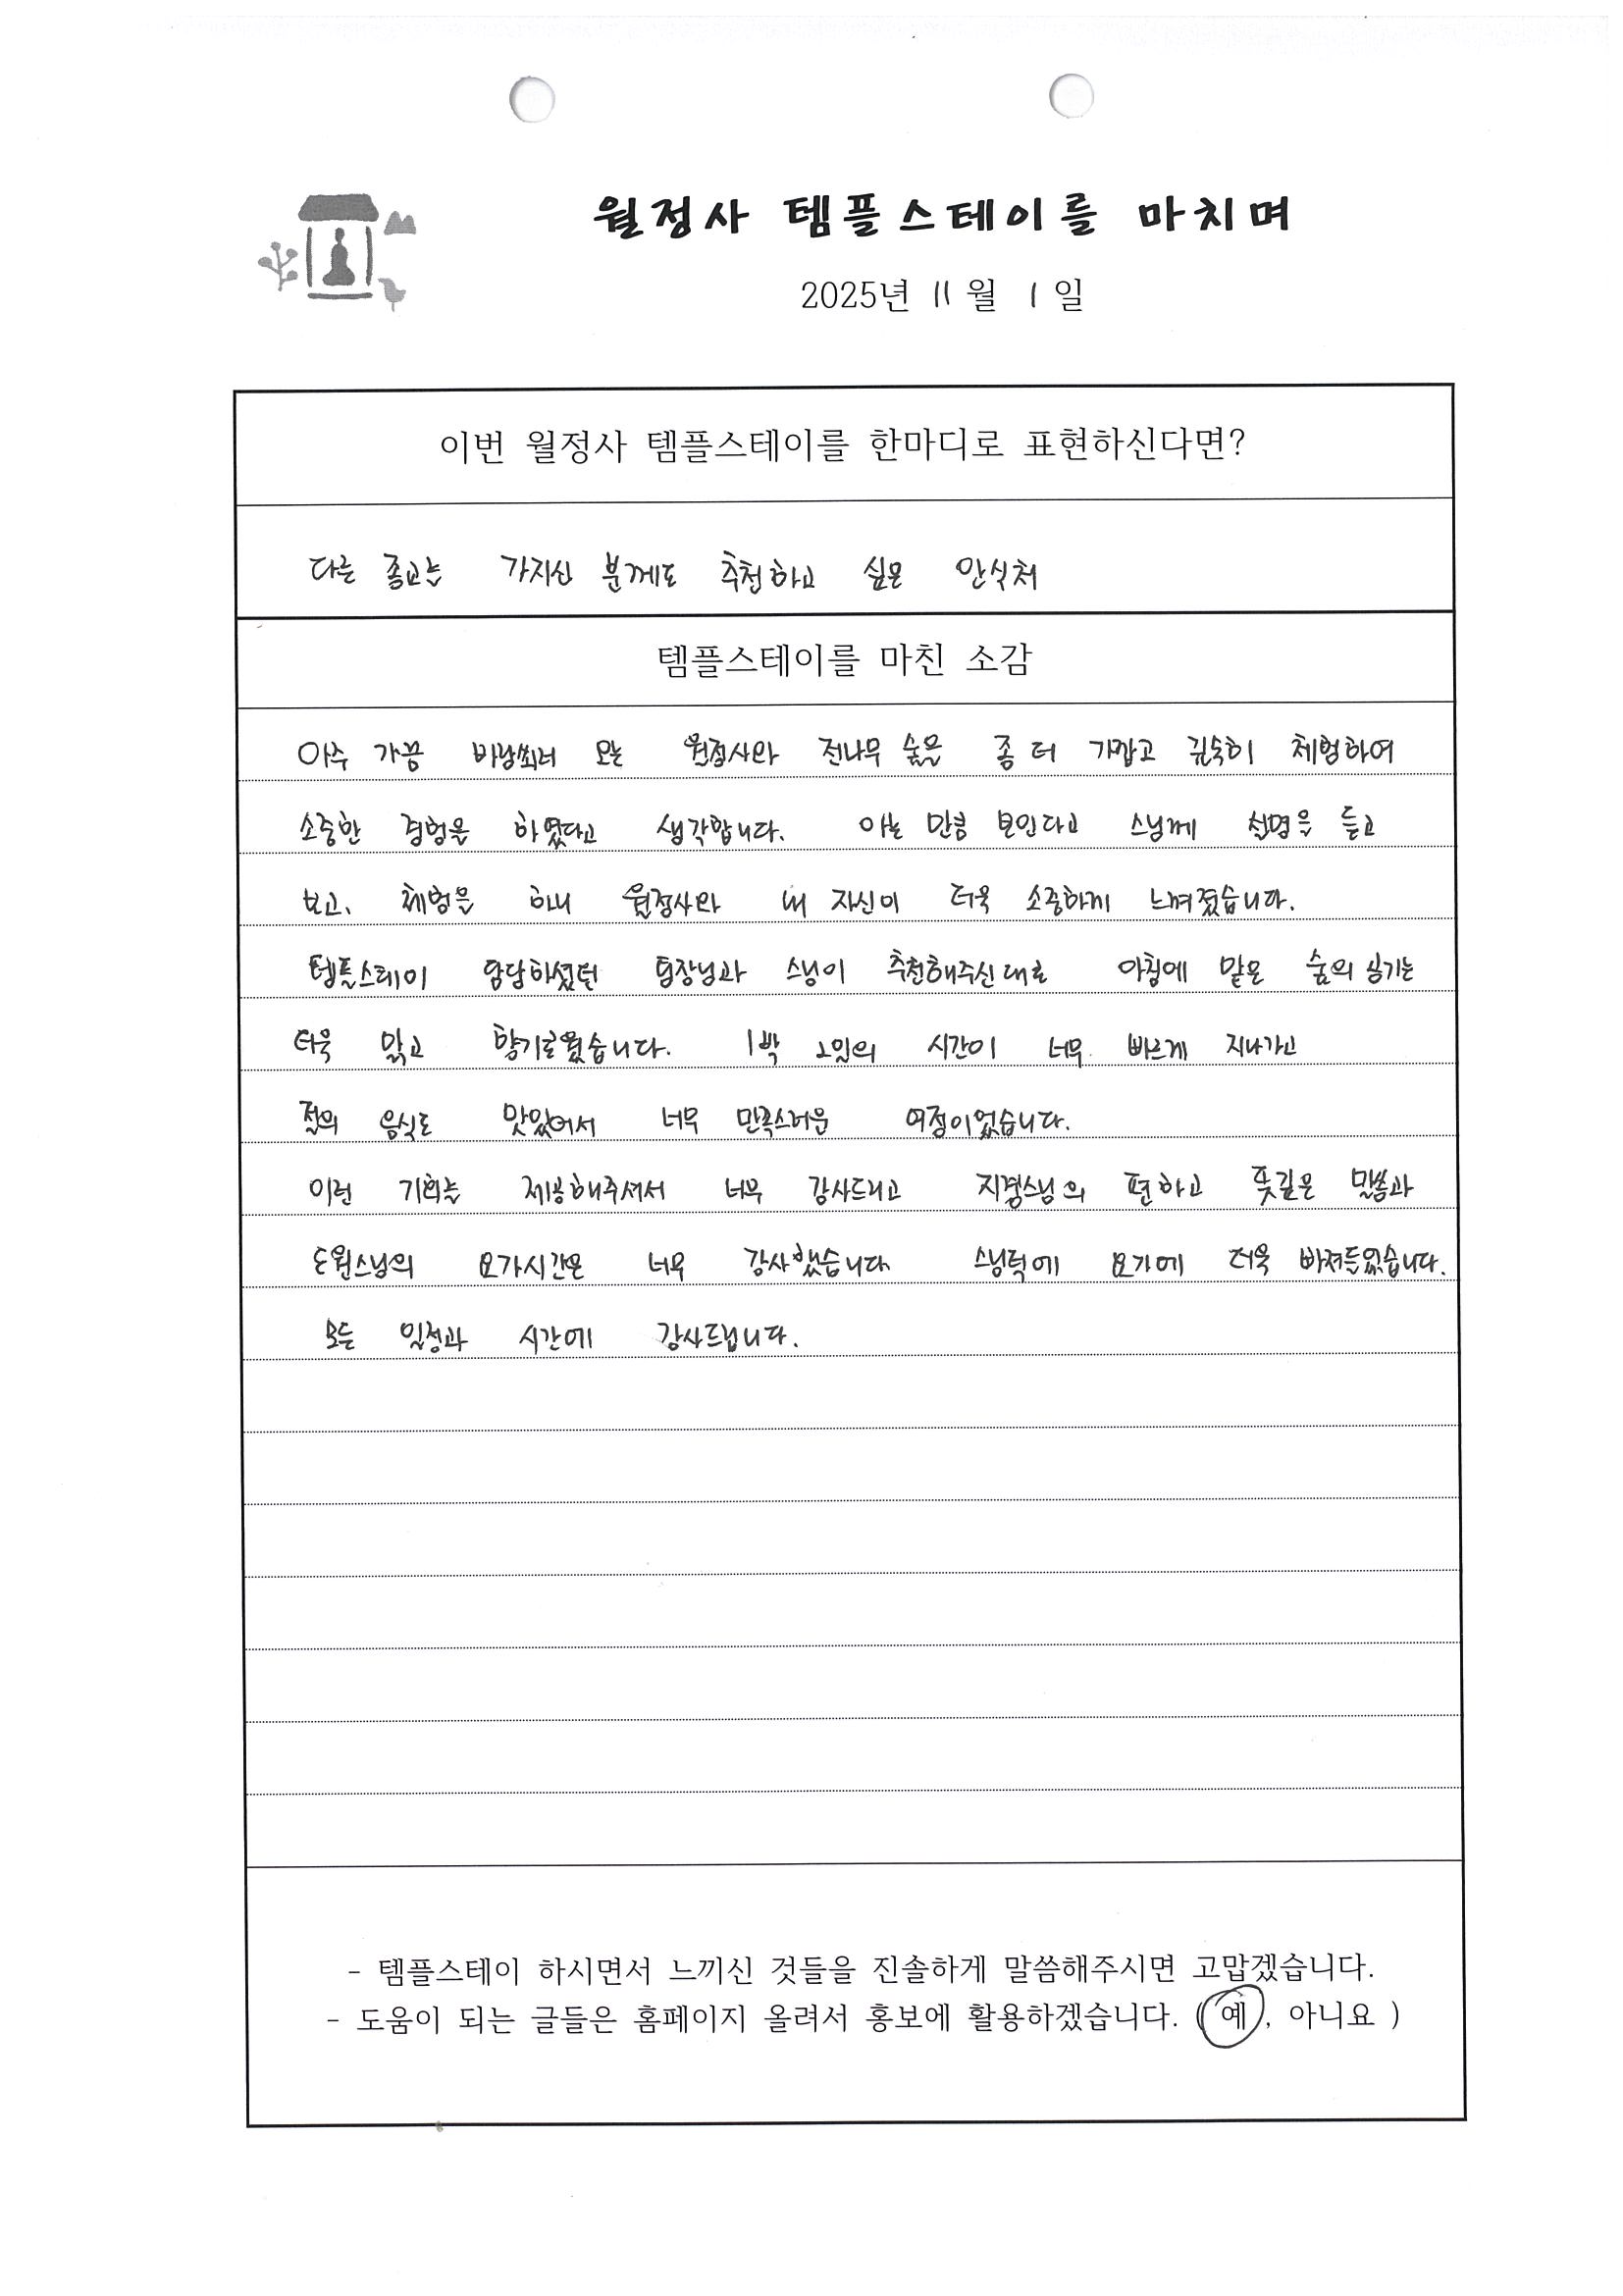 월정사 템플스테이를 마치며
2025년 11월 1일
이번 월정사 템플스테이를 한마디로 표현하신다면?
다른 종교를 가지신 분께도 추천하고 싶은 안식처
템플스테이를 마친 소감
아주 가끔 바람쐬러 오는 월정사와 전나무 숲을 좀 더 가깝고 깊숙히 체험하여
소중한 경험을 하였다고 생각합니다. 아는 만큼 보인다고 스님께 설명을 듣고
보고, 체험을 하니 월정사와 내 자신이 더욱 소중하게 느껴졌습니다.
템플스테이 담당하셨던 팀장님과 스님이 추천해주신대로 아침에 맡은 숲의 공기는
더욱 맑고 향기로웠습니다. 1박 2일의 시간이 너무 빠르게 지나가고
절의 음식도 맛있어서 너무 만족스러운 여정이었습니다.
이런 기회를 제공해주셔서 너무 감사드리고 스님의 편하고 뜻깊은 말씀과
도원스님의 요가시간은 너무 감사했습니다 스님덕에 요가에 더욱 빠져들었습니다.
모든 일정과 시간에 감사드립니다.
- 템플스테이 하시면서 느끼신 것들을 진솔하게 말씀해주시면 고맙겠습니다.
- 도움이 되는 글들은 홈페이지 올려서 홍보에 활용하겠습니다. ( 예 , 아니요 )